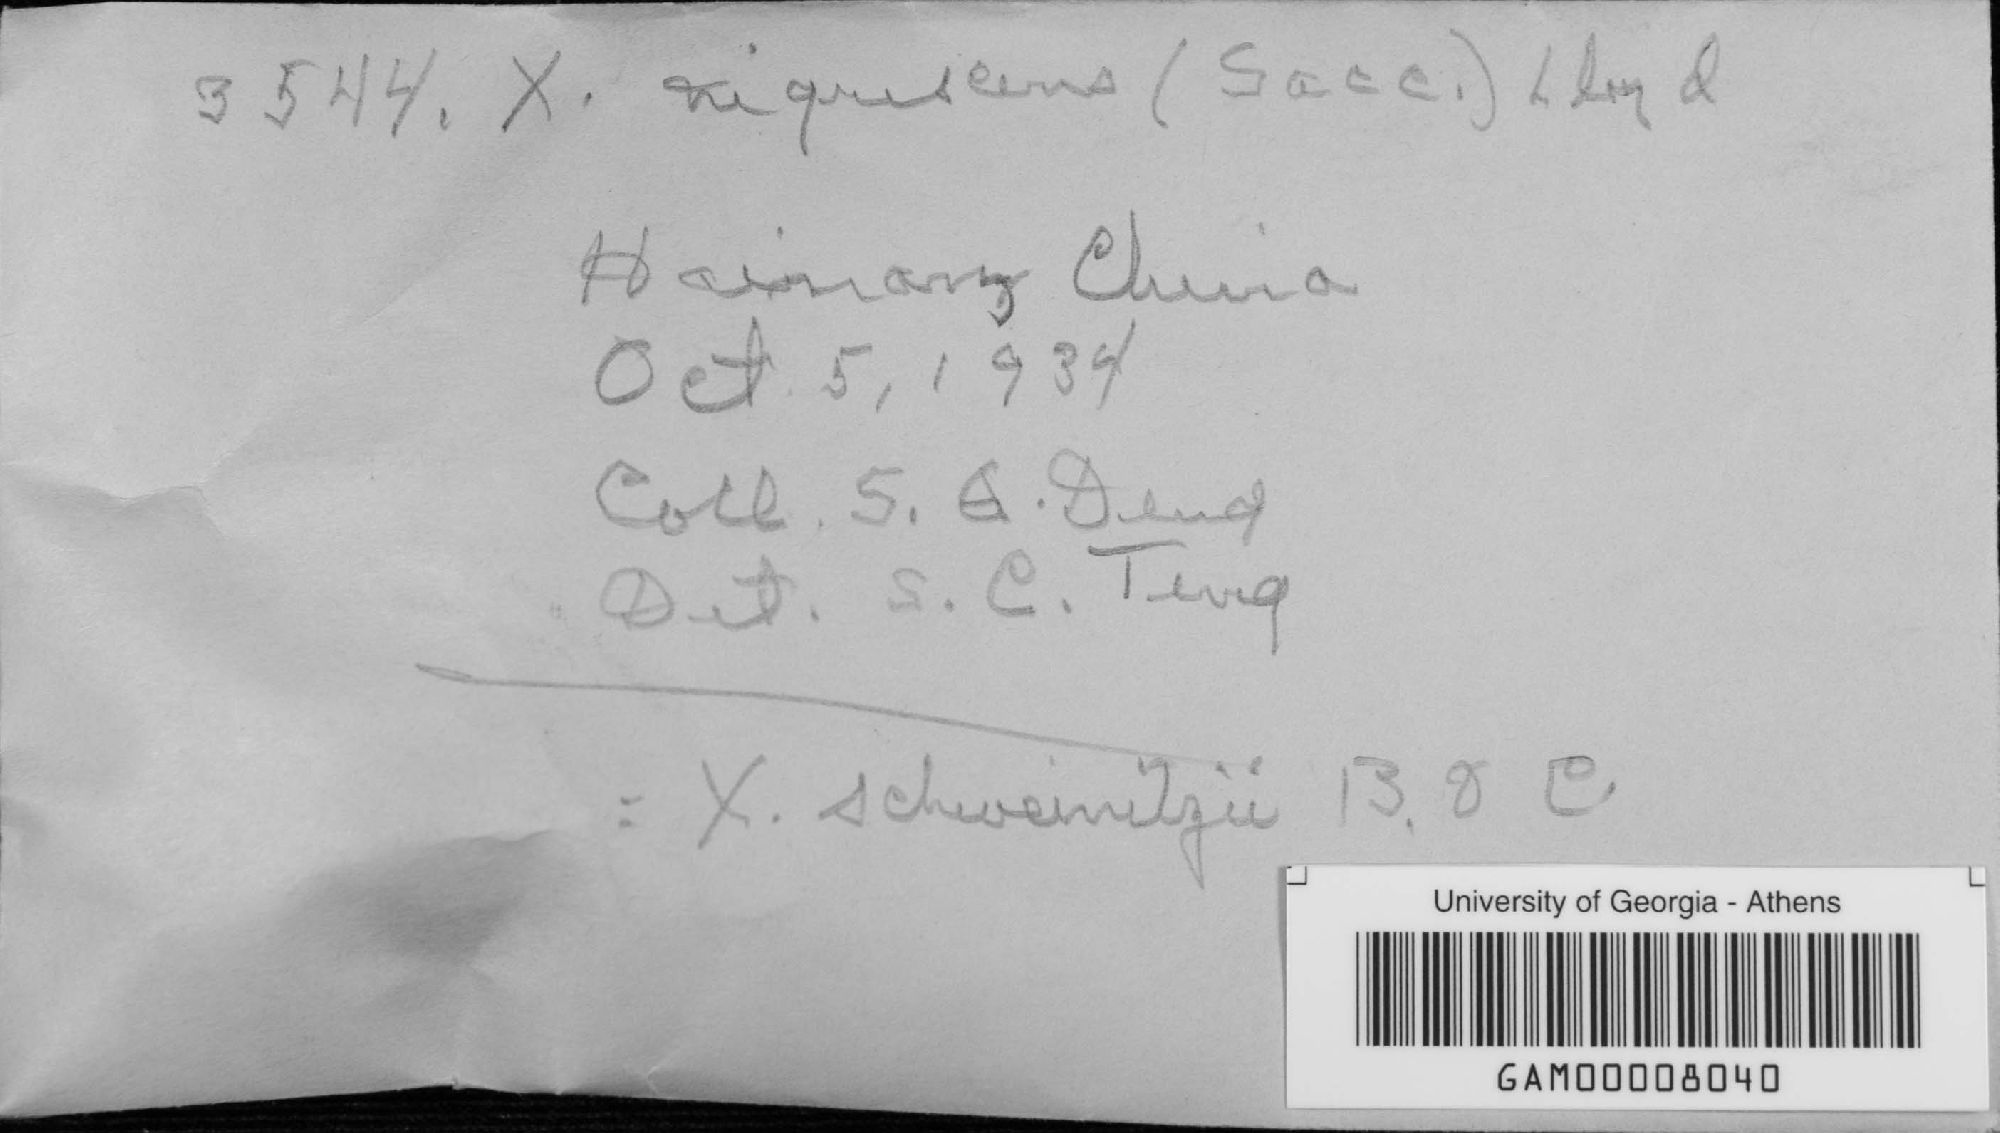 3544. X. nigrescens (Sacc.) Lloyd
Hainan, China
Oct. 5, 1934
Coll. S. Q. Deng
Det. S. C. Teng
= X. schweinitzii B. & C.
University of Georgia - Athens
GAM00008040